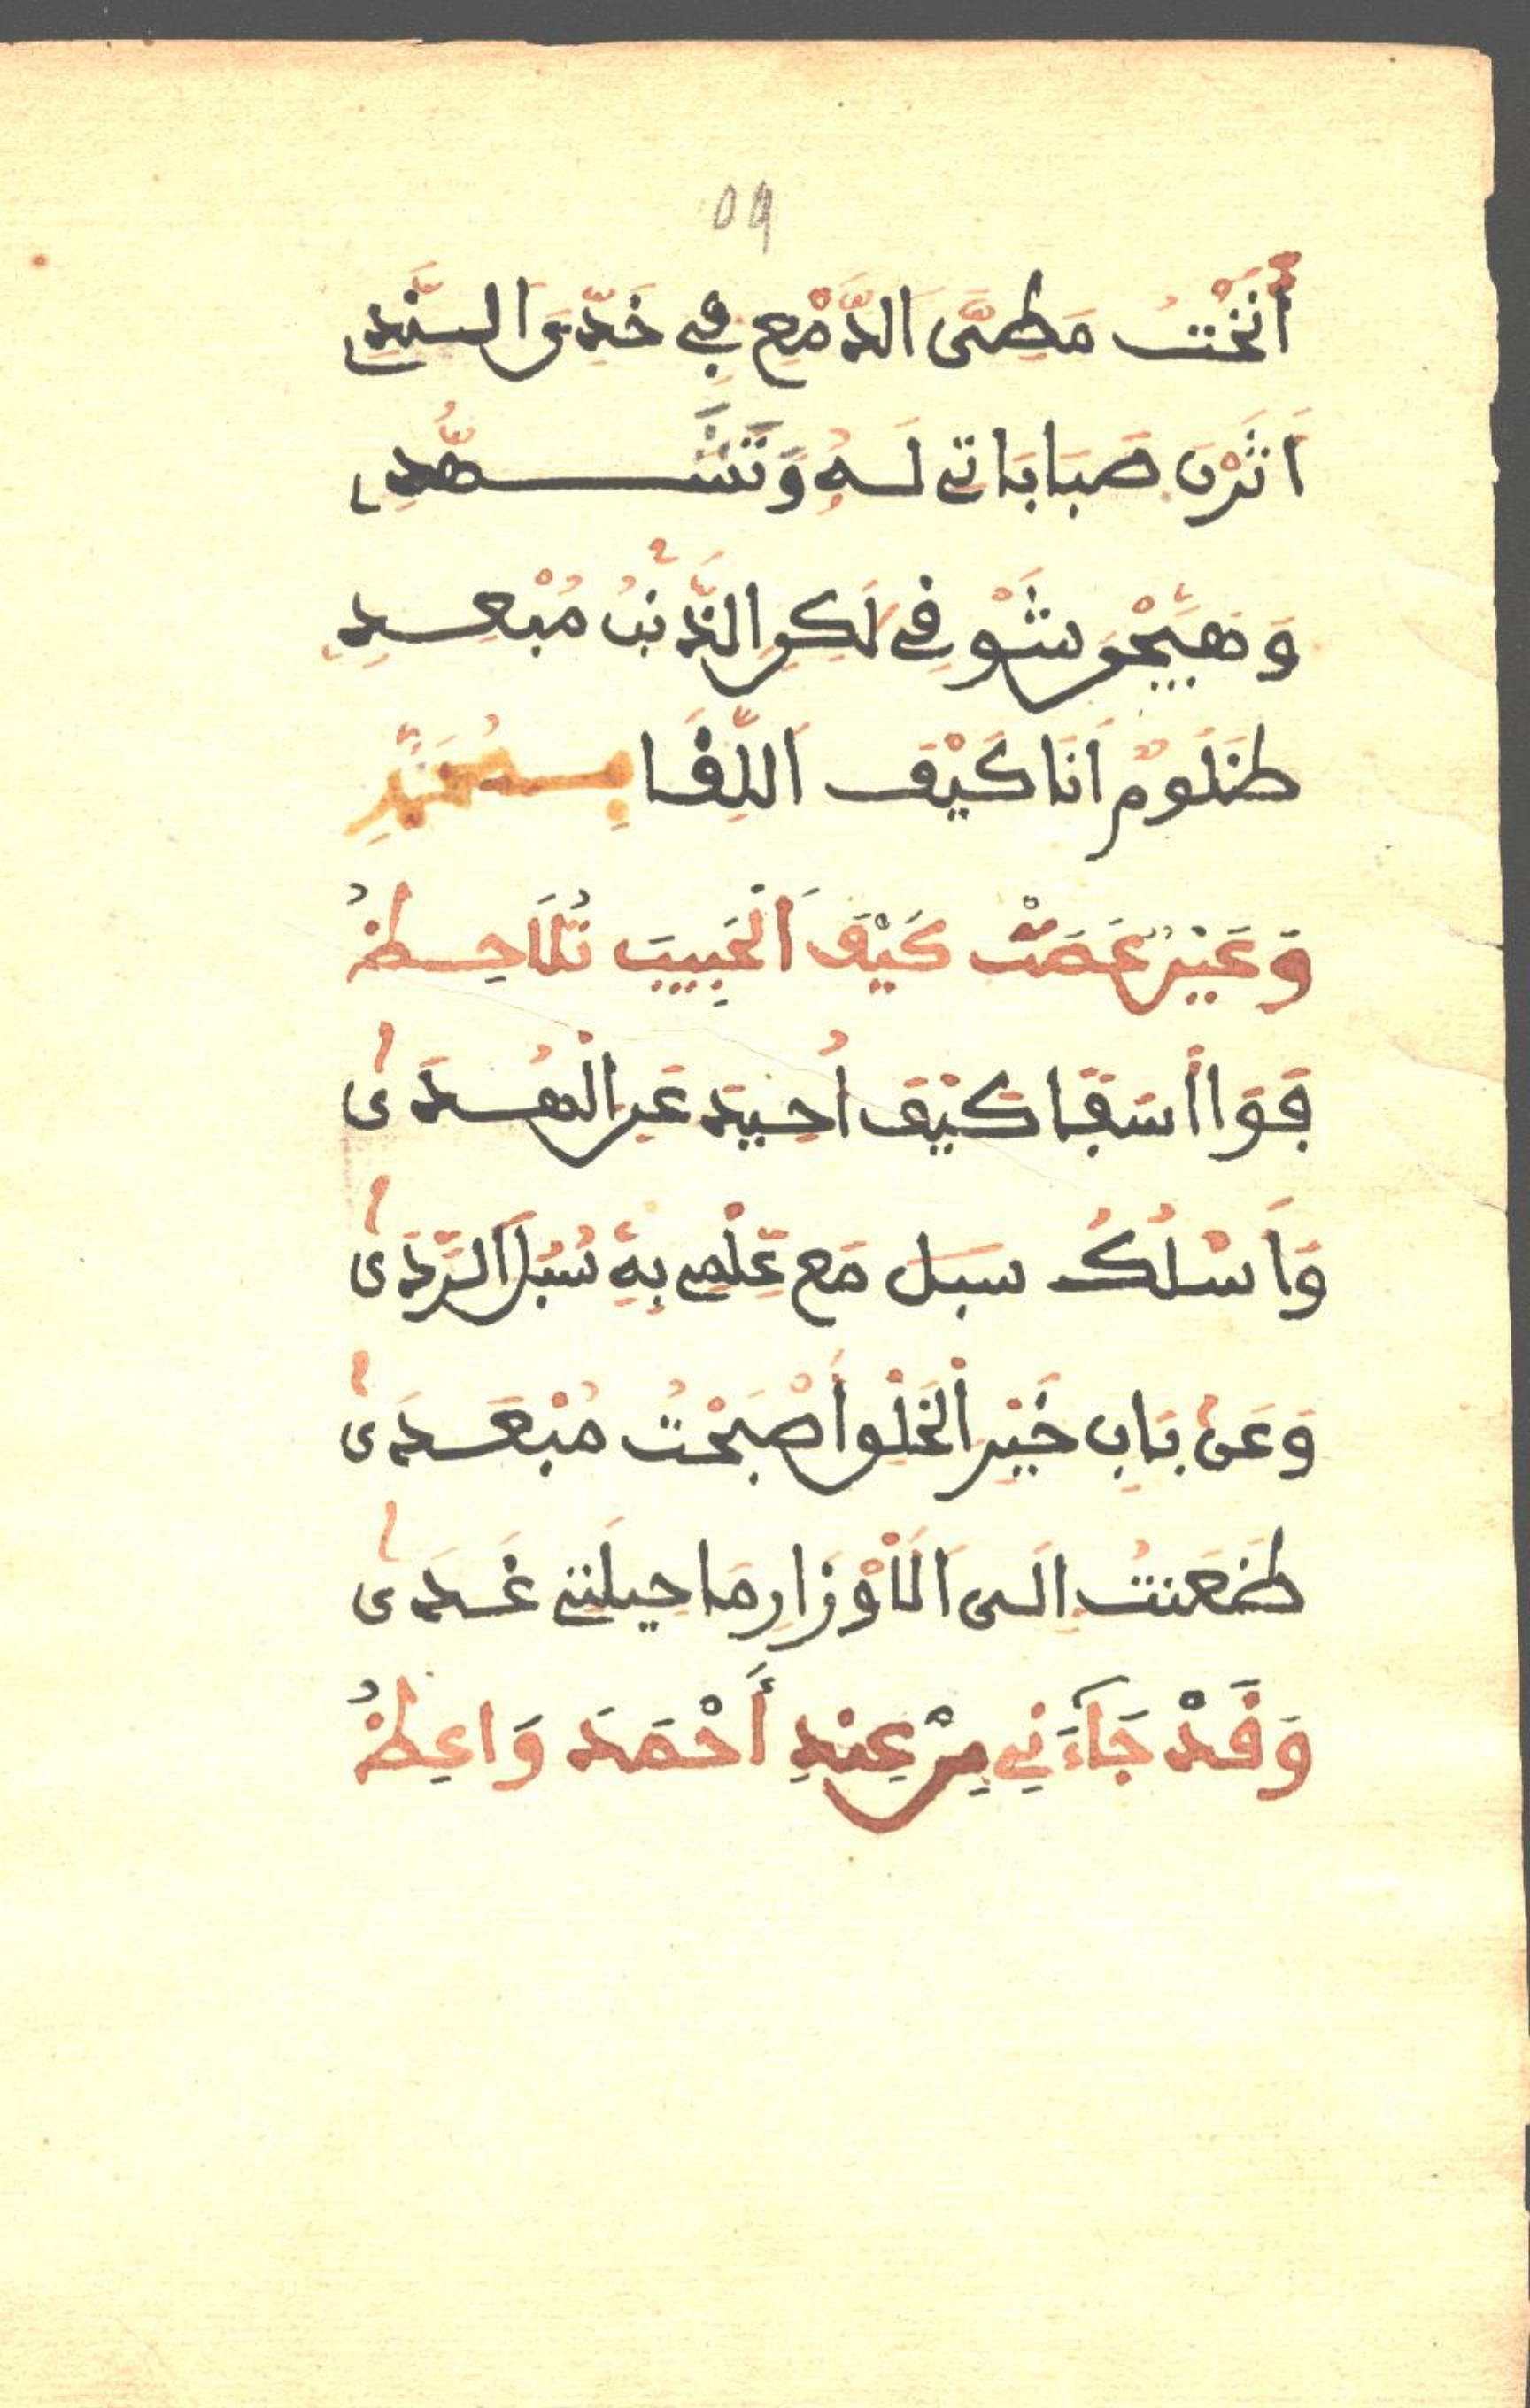 59
أَنَخْتُ مَطِيَّ الدَّمْعِ فِي خَدِّيَ النَّدِي
اَثَرْنَ صَبَابَاتي لَهُ وَتَشَهُّدِي
وَهَيَّجْنَ شَوْقِي لَكِنِ الذَّنْبُ مُبْعِدِي
ظَلُومٌ اَنَا كَيْفَ اللِّقَا بِمُحَمَّدِ
وَعَيْنٌ عَصَتْ كَيْفَ اَلْحَبِيبَ تُلَاحِظُ
فَوَا أَسَفَا كَيْفَ اُحِيدَ عَنِ الْهُدَى
وَاَسْلُكُ سبل مَع عِلْمِي بِهِ سُبُلَ اَلرَّدَى
وَعَنْ بَابِ خَيْرِ اْلخَلْقِ اَصْبَحْتُ مُبْعَدَى
ظَعَنتُ اِلَى اَلَاوْزَارِ مَا حِيلَتِي غَدَى
وَقَدْ جَاءَنِي مِنْ عِنْدِ أَحْمَدَ وَاعِظُ